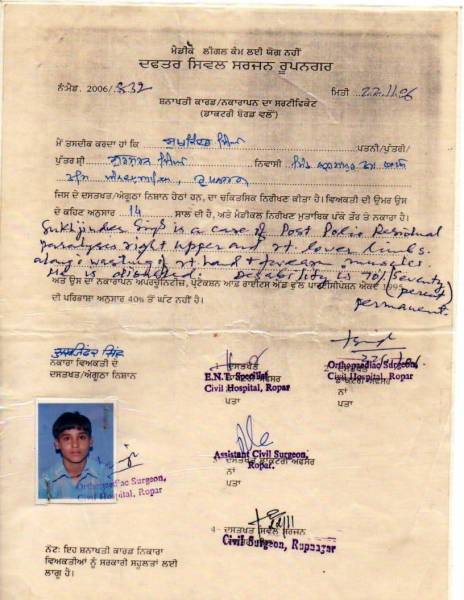 ਮੈਡੀਕੋ ਲੀਗਲ ਕੰਮ ਲਈ ਯੋਗ ਨਹੀਂ
ਦਫਤਰ ਸਿਵਲ ਸਰਜਨ ਰੂਪਨਗਰ
ਨੰ:ਮੈਡ. 2006/832 ਮਿਤੀ 22.11.06
ਸ਼ਨਾਖਤੀ ਕਾਰਡ/ਨਕਾਰਾਪਨ ਦਾ ਸਰਟੀਫਿਕੇਟ
(ਡਾਕਟਰੀ ਬੋਰਡ ਵਲੋਂ)
ਮੈਂ ਤਸਦੀਕ ਕਰਦਾ ਹਾਂ ਕਿ ਸੁਖਜਿੰਦਰ ਸਿੰਘ ਪਤਨੀ/ਪੁੱਤਰੀ/
ਪੁੱਤਰ ਸ਼੍ਰੀ ਸਿੰਘ ਨਿਵਾਸੀ ਪਿੰਡ
ਜਿਸ ਦੇ ਦਸਤਖਤ/ਅੰਗੂਠਾ ਨਿਸ਼ਾਨ ਹੇਠਾਂ ਹਨ, ਦਾ ਚਕਿਤਸਿਕ ਨਿਰੀਖਣ ਕੀਤਾ ਹੈ। ਵਿਅਕਤੀ ਦੀ ਉਮਰ ਉਸ
ਦੇ ਕਹਿਣ ਅਨੁਸਾਰ 14 ਸਾਲ ਦੀ ਹੈ, ਅਤੇ ਮੈਡੀਕਲ ਨਿਰੀਖਣ ਮੁਤਾਬਿਕ ਪੱਕੇ ਤੌਰ ਤੇ ਨਕਾਰਾ ਹੈ।
Sukhjinder Singh is a case of Post Polio Residual
Paralysis right upper and rt. lower limbs.
along wasting of rt. hand & forearm muscles.
He is Disability is 70% (Seventy
percent)
permanent.
ਅਤੇ ਉਸ ਦਾ ਨਕਾਰਾਪਨ ਅਪਰਚੂਨਿਟੀਜ਼, ਪ੍ਰੋਟੈਕਸ਼ਨ ਆਫ ਰਾਈਟਸ ਐਂਡ ਫੁੱਲ ਪਾਰਟੀਸੀਪੇਸ਼ਨ ਐਕਟ 1995
ਦੀ ਪਰਿਭਾਸ਼ਾ ਅਨੁਸਾਰ 40% ਤੋਂ ਘੱਟ ਨਹੀਂ ਹੈ।
ਸੁਖਜਿੰਦਰ ਸਿੰਘ
ਨਕਾਰਾ ਵਿਅਕਤੀ ਦੇ
ਦਸਤਖਤ/ਅੰਗੂਠਾ ਨਿਸ਼ਾਨ
ਦਸਤਖਤ
E.N.T. Specilist
Civil Hospital, Ropar
ਪਤਾ
Orthopaediac Surgeon,
Civil Hospital, Ropar
ਪਤਾ
Assistant Civil Surgeon,
Ropar.
ਦਸਤਖਤ ਡਾਕਟਰੀ ਅਫਸਰ
ਨਾਂ
ਪਤਾ
Orthopaediac Surgeon,
Civil Hospital, Ropar
4- ਦਸਤਖਤ ਸਿਵਲ ਸਰਜਨ
Civil Surgeon, Rupnagar
ਨੋਟ: ਇਹ ਸ਼ਨਾਖਤੀ ਕਾਰਡ ਨਿਕਾਰਾ
ਵਿਅਕਤੀਆਂ ਨੂੰ ਸਰਕਾਰੀ ਸਹੂਲਤਾਂ ਲਈ
ਲਾਗੂ ਹੈ।